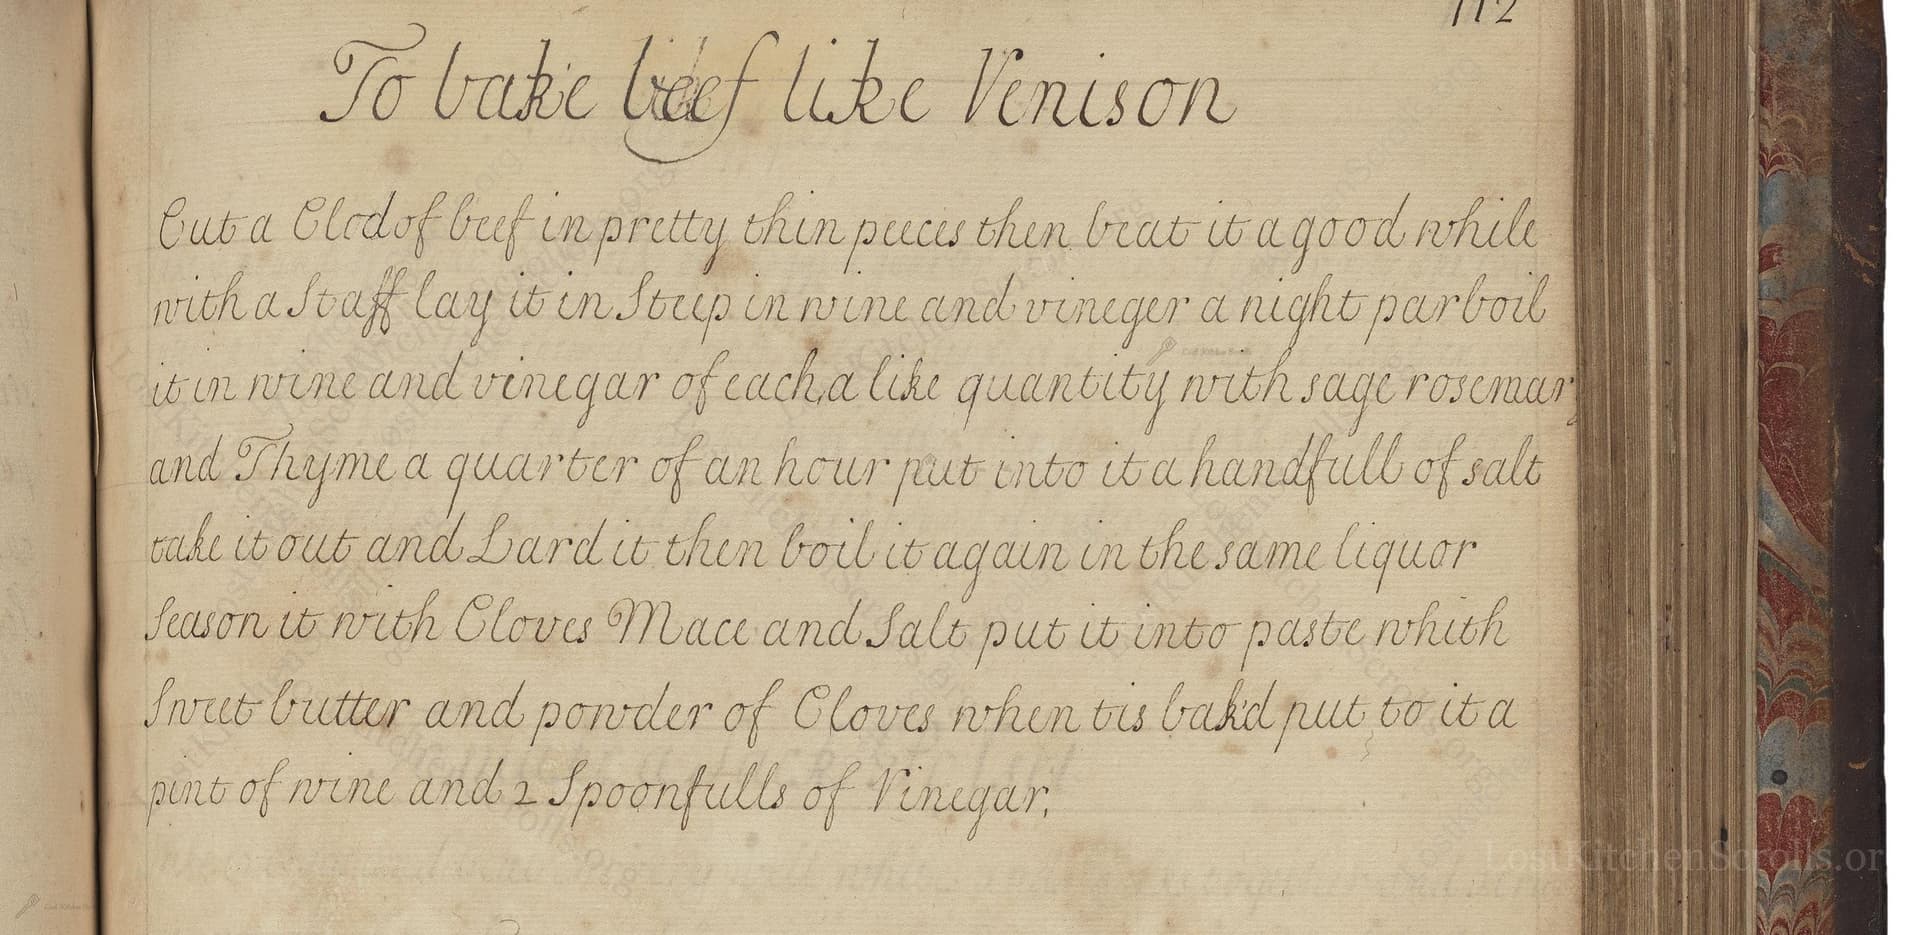 112
To bake beef like Venison
Cut a Clod of beef in pretty thin peeces then beat it a good while
with a Staff lay it in Steep in wine and vineger a night parboil
it in wine and vinegar of each a like quantity with sage rosemary
and Thyme a quarter of an hour put into it a handfull of salt
take it out and Lard it then boil it again in the same liquor
Season it with Cloves Mace and Salt put it into paste whith
Sweet butter and powder of Cloves when tis bak'd put to it a
pint of wine and 2 Spoonfulls of Vinegar;
LostKitchenScrolls.or